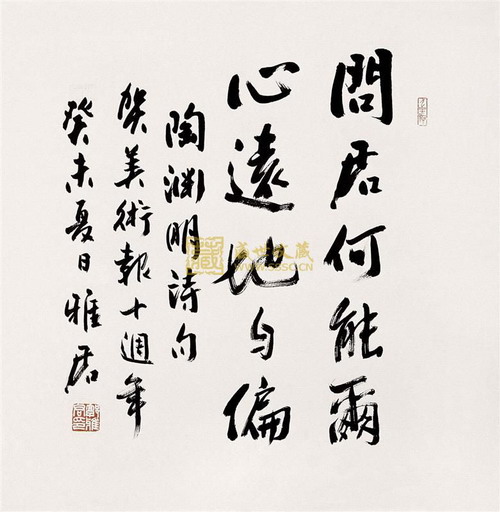 問君何能爾
心遠地自偏
陶淵明詩句
賀美術報十週年
癸未夏日雅君
盛世收藏
WWW.SSSC.CN